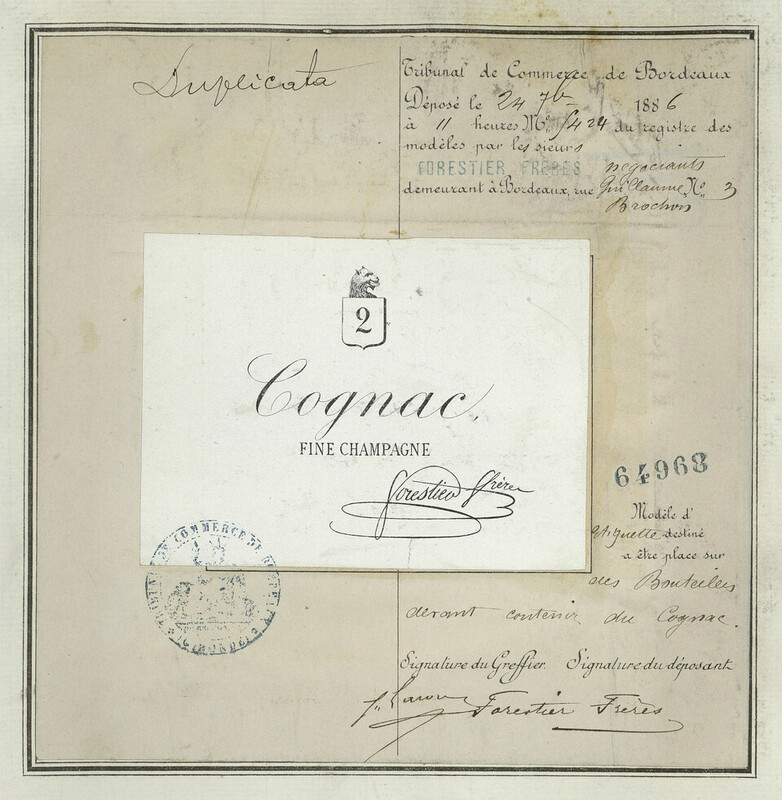 Duplicata
Tribunal de Commerce de Bordeaux
Déposé le 24 7b 1886
à 11 heures No 5424 du registre des
modèles par les sieurs
FORESTIER FRÈRES négociants
demeurant à Bordeaux, rue Guillaume No 3
Brochon
2
Cognac,
FINE CHAMPAGNE
Forestier Frères
64968
Modèle d'
étiquette destiné
a être place sur
des Bouteilles
devant contenir du Cognac.
TRIBUNAL DE COMMERCE DE BORDEAUX
(GIRONDE)
Signature du Greffier. Signature du déposant
Forestier Frères